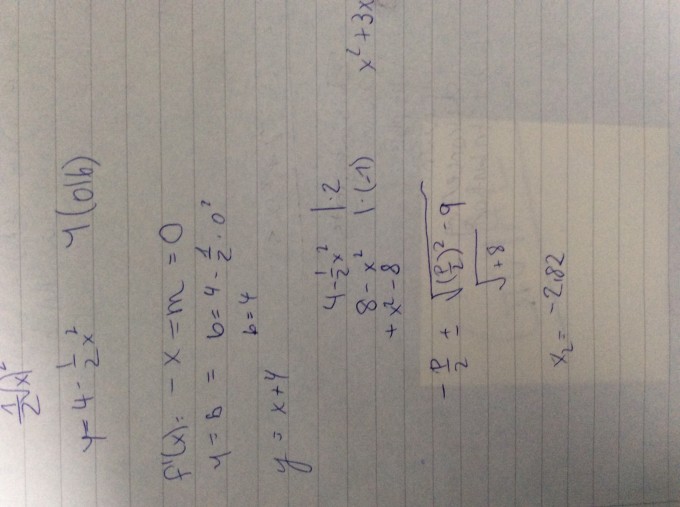 y = 4 - 1/2 x² Y(0|b)
f'(x): - x = m = 0
y = b = b = 4 - 1/2 · 0²
b = 4
y = x + 4
4 - 1/2 x² | · 2
8 - x² | · (-1)
+ x² - 8
x² + 3x
- p/2 ± √((p/2)² - q
√+8
x₂ = -2,82